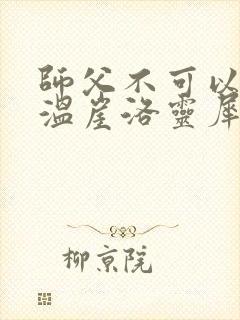 師父不可以
溫崖洛靈犀
柳京院